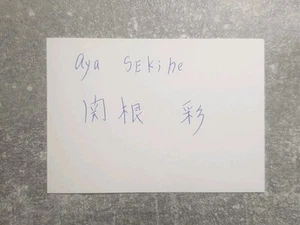 aya SEkine
関根 彩